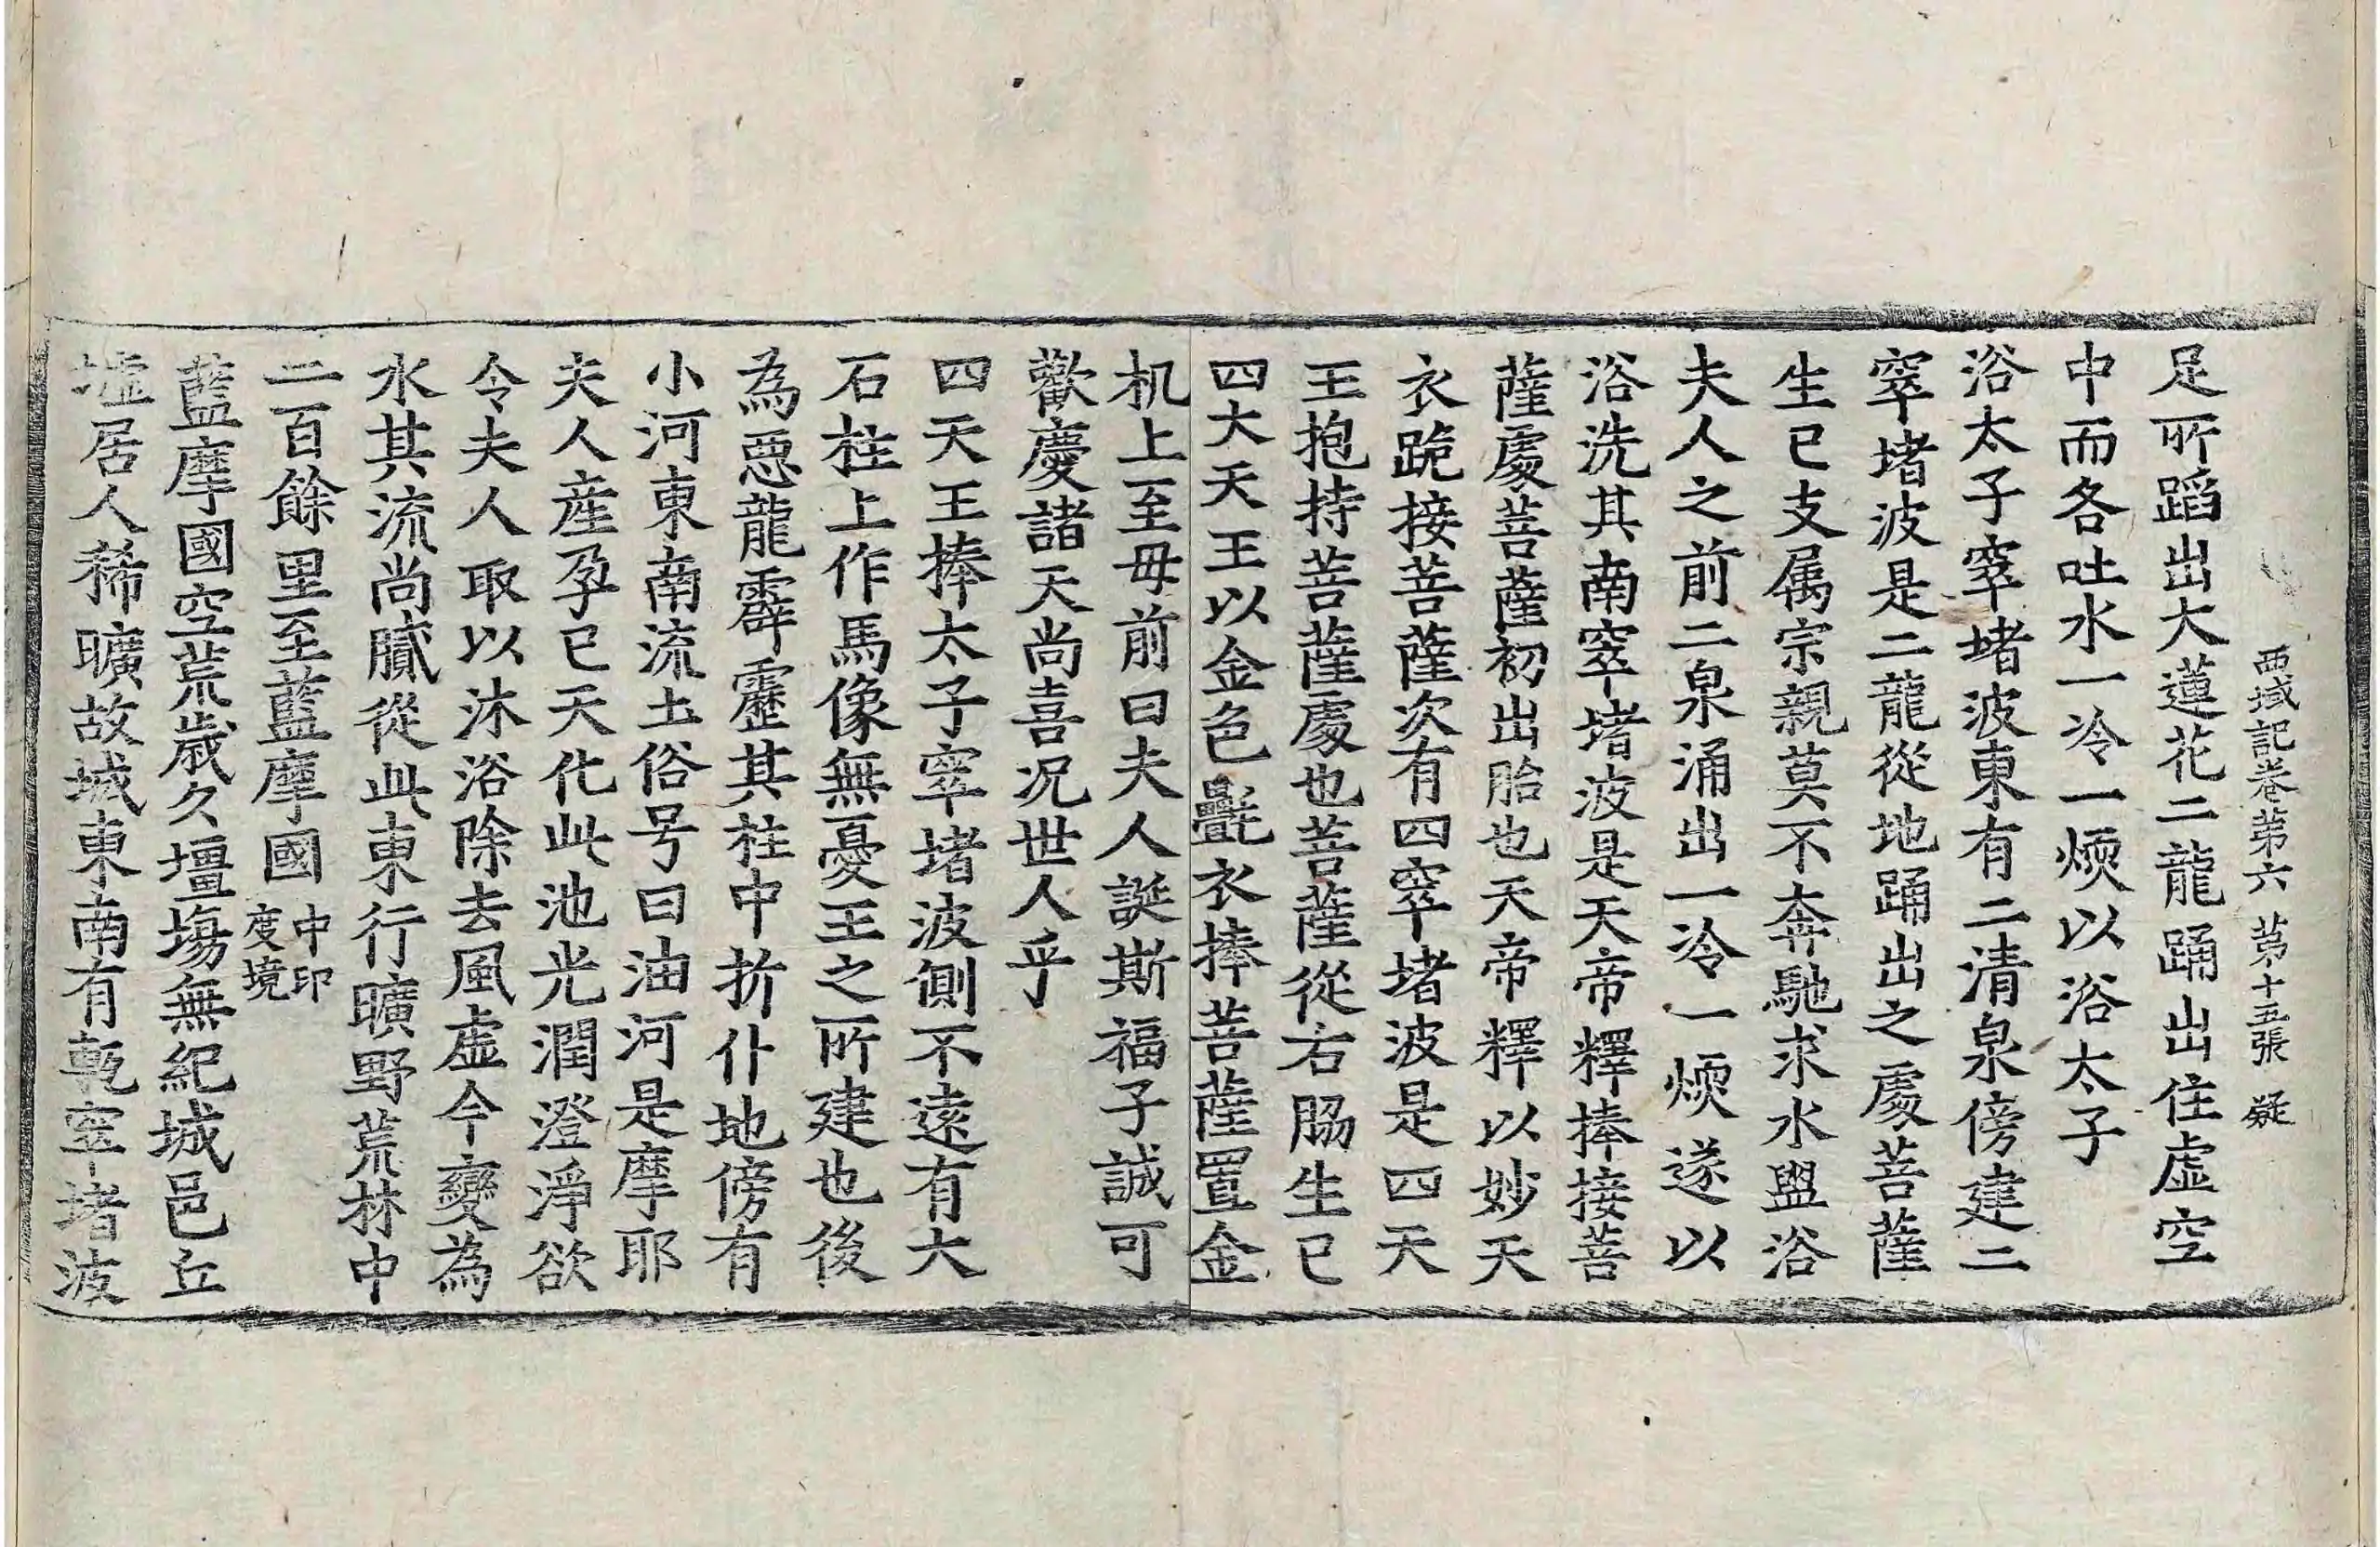 西域記卷第六 第十五張 疑
足所蹈出大蓮花二龍踊出住虛空
中而各吐水一冷一煗以浴太子
浴太子窣堵波東有二清泉傍建二
窣堵波是二龍從地踊出之處菩薩
生已支属宗親莫不奔馳求水盥浴
夫人之前二泉涌出一冷一煗遂以
浴洗其南窣堵波是天帝釋捧接菩
薩處菩薩初出胎也天帝釋以妙天
衣跪接菩薩次有四窣堵波是四天
王抱持菩薩處也菩薩從右脇生已
四大天王以金色㲲衣捧菩薩置金
机上至母前曰夫人誕斯福子誠可
歡慶諸天尚喜況世人乎
四天王捧太子窣堵波側不遠有大
石柱上作馬像無憂王之所建也後
為惡龍霹靂其柱中折仆地傍有
小河東南流土俗号曰油河是摩耶
夫人産孕已天化此池光潤澄淨欲
令夫人取以沐浴除去風虛今變為
水其流尚膩從此東行曠野荒林中
二百餘里至藍摩國 中印度境
藍摩國空荒歲久壃埸無紀城邑丘
墟居人稀曠故城東南有甎窣堵波